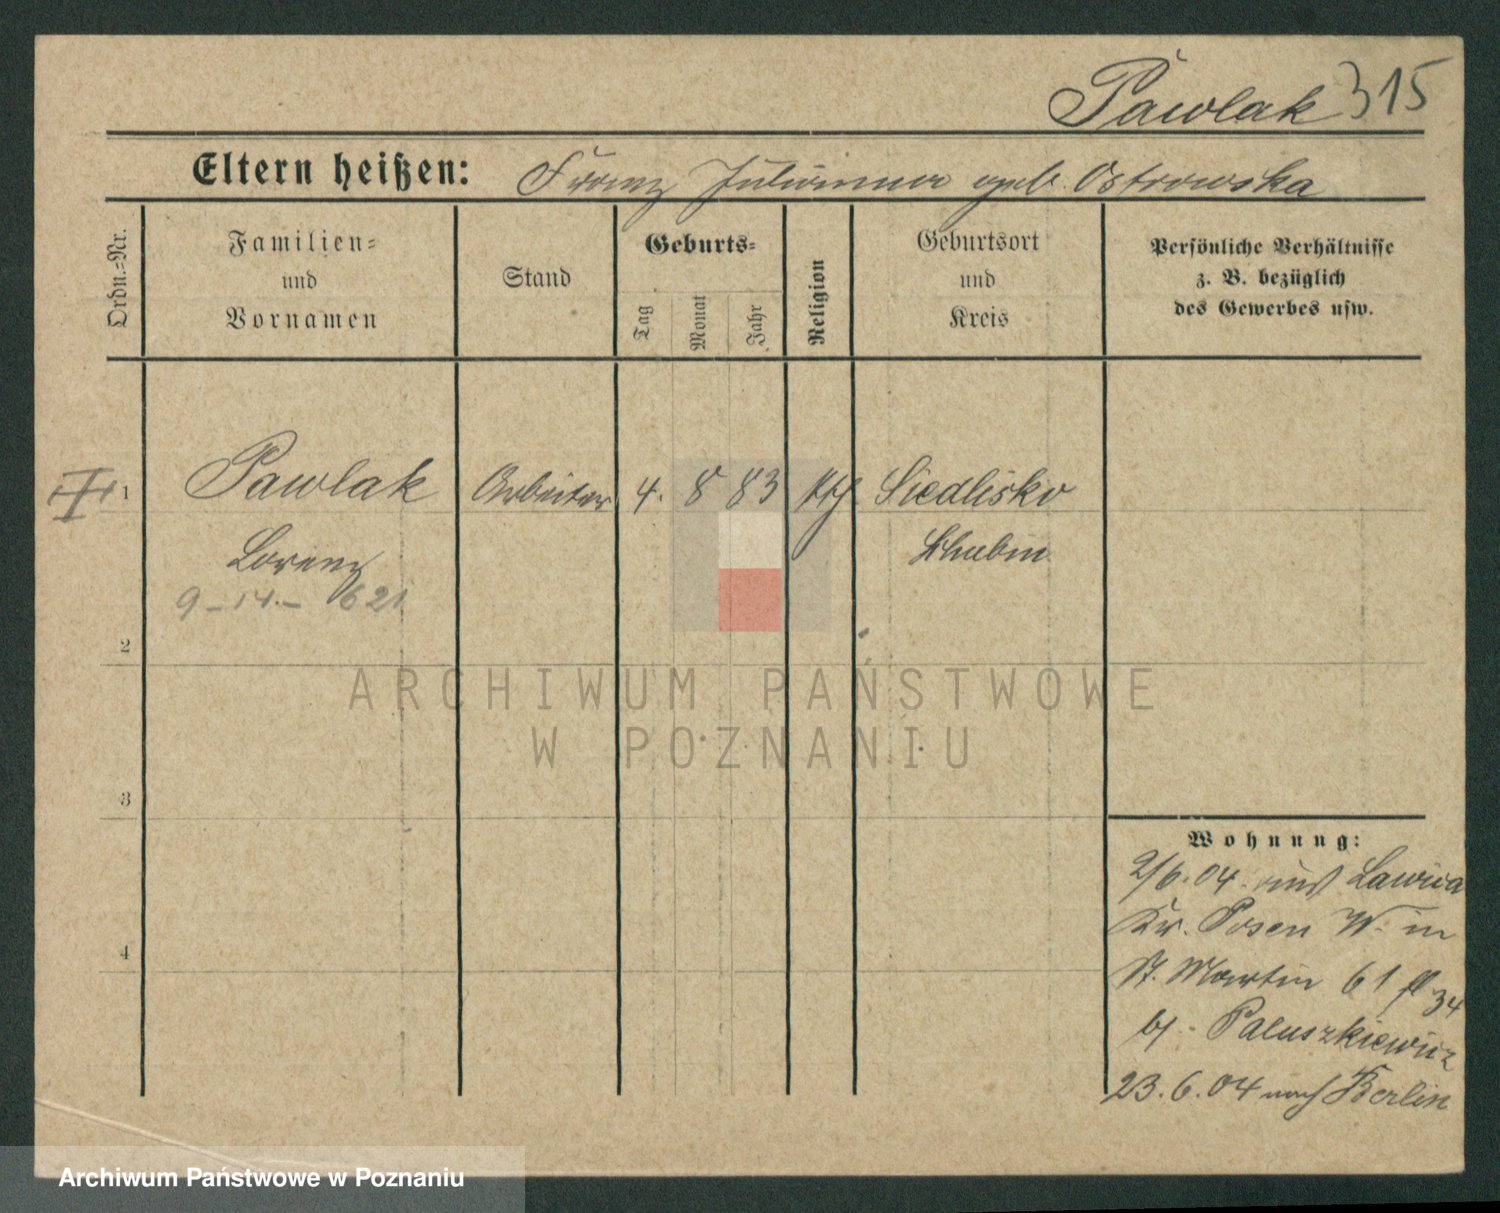 Pawlak 315
Eltern heißen: Franz Julianna geb. Ostrowska
Ordn.=Nr.
Familien=
und
Vornamen
Stand
Geburts=
Tag
Monat
Jahr
Religion
Geburtsort
und
Kreis
Persönliche Verhältnisse
z. B. bezüglich
des Gewerbes usw.
1 Pawlak Arbeiter 4. 8 83 kth Siedlisko
Lorenz Schubin
9-14.- 621
2
3
4
Wohnung:
2/6.04. aus Lawica
Kr. Posen W. in
St. Martin 61 34
bei Paluszkiewicz
23.6.04 nach Berlin
ARCHIWUM PAŃSTWOWE
W POZNANIU
Archiwum Państwowe w Poznaniu